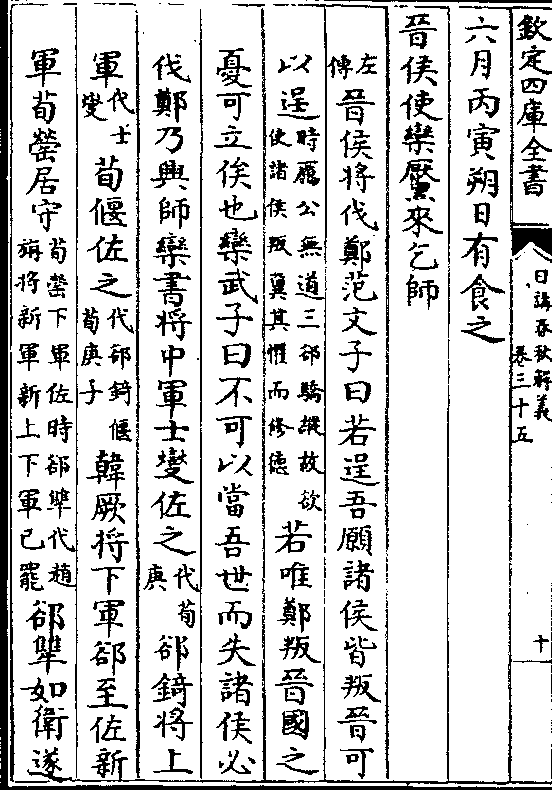 欽定四庫全書 日講春秋解義 卷三十五 十
六月丙寅朔日有食之
晉侯使欒黶來乞師
左傳晉侯將伐鄭范文子曰若逞吾願諸侯皆叛晉可
以逞時厲公無道三郤驕縱故欲使諸侯叛冀其懼而修德若唯鄭叛晉國之
憂可立俟也欒武子曰不可以當吾世而失諸侯必
伐鄭乃興師欒書將中軍士燮佐之代荀庚郤錡將上
軍代士燮荀偃佐之代郤錡偃荀庚子韓厥將下軍郤至佐新
軍荀罃居守荀罃下軍佐時郤犨代趙旃將新軍新上下軍已罷郤犨如衛遂